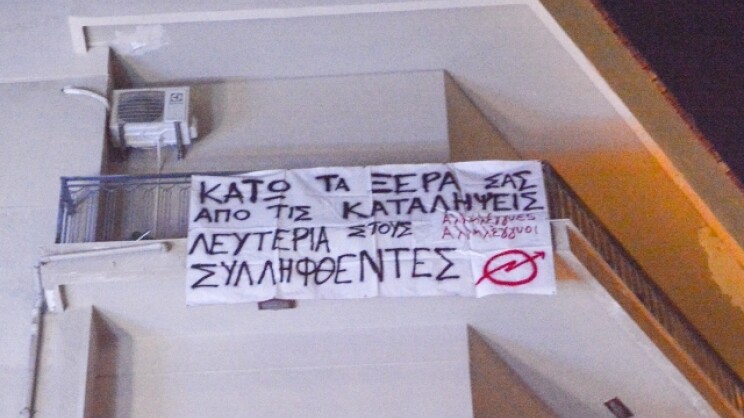 ΚΑΤΩ ΤΑ ΞΕΡΑ ΣΑΣ
ΑΠΟ ΤΙΣ ΚΑΤΑΛΗΨΕΙΣ
ΛΕΥΤΕΡΙΑ ΣΤΟΥΣ
Αλληλέγγυες
Αλληλέγγυοι
ΣΥΛΛΗΦΘΕΝΤΕΣ